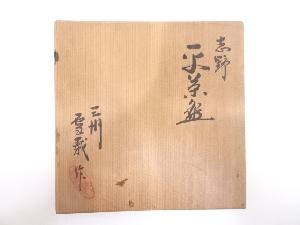 志野
平茶盌
三州
雪哉作